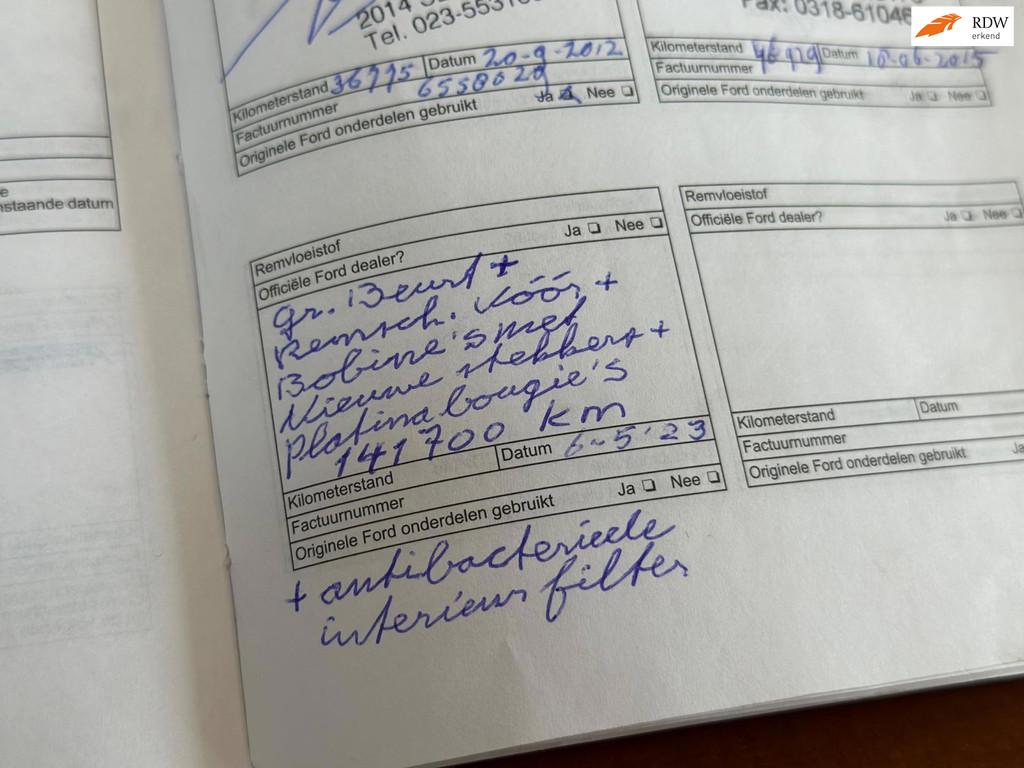 2014
Tel. 023-5531
Kilometerstand 36775 Datum 20-9-2012
Factuurnummer 6558029
Originele Ford onderdelen gebruikt Ja Nee
Fax: 0318-61046
Kilometerstand Datum 10-06-2015
Factuurnummer
Originele Ford onderdelen gebruikt Ja Nee
RDW
erkend
nstaande datum
Remvloeistof
Officiële Ford dealer? Ja Nee
gr. Beurt +
Remsch. Vóór +
Bobine's met
Nieuwe stekkers +
Platina bougie's
141700 km
Kilometerstand Datum 6-5'23
Factuurnummer
Originele Ford onderdelen gebruikt Ja Nee
+ antibacteriele
interieur filter
Remvloeistof
Officiële Ford dealer? Ja Nee
Kilometerstand Datum
Factuurnummer
Originele Ford onderdelen gebruikt Ja